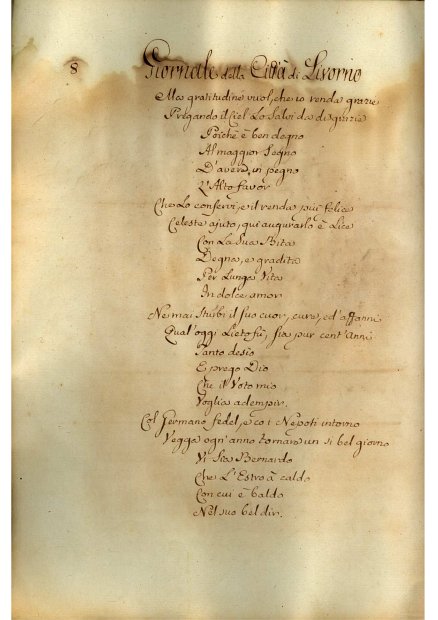 8
Giornale della Città di Livorno
Ma gratitudine vuol, che io renda grazie
Pregando il Ciel Lo Salvi da disgrazie
Poichè è ben degno
Al maggior Segno
D'avere, in pegno
L'Alto favor
Che Lo conservi, e il renda più felice
Celeste ajuto, qui augurarlo è Lice
Con La Sua
Degna, e gradita
Per Lunga Vita
In dolce amor
Ne mai Sturbi il Suo cuor, cure, ed'affanni
Qual'oggi Lieto fù, Sia pur cent'Anni
Tanto desìo
E prego Dio
Che il Voto mio
Voglia adempir,
Col Germano fedel, e co i Nepoti intorno
Vegga ogn'anno tornare un si bel giorno
Vi Sia Bernardo
Che L'Estro à caldo
Con cui è baldo
Nel suo bel dir.